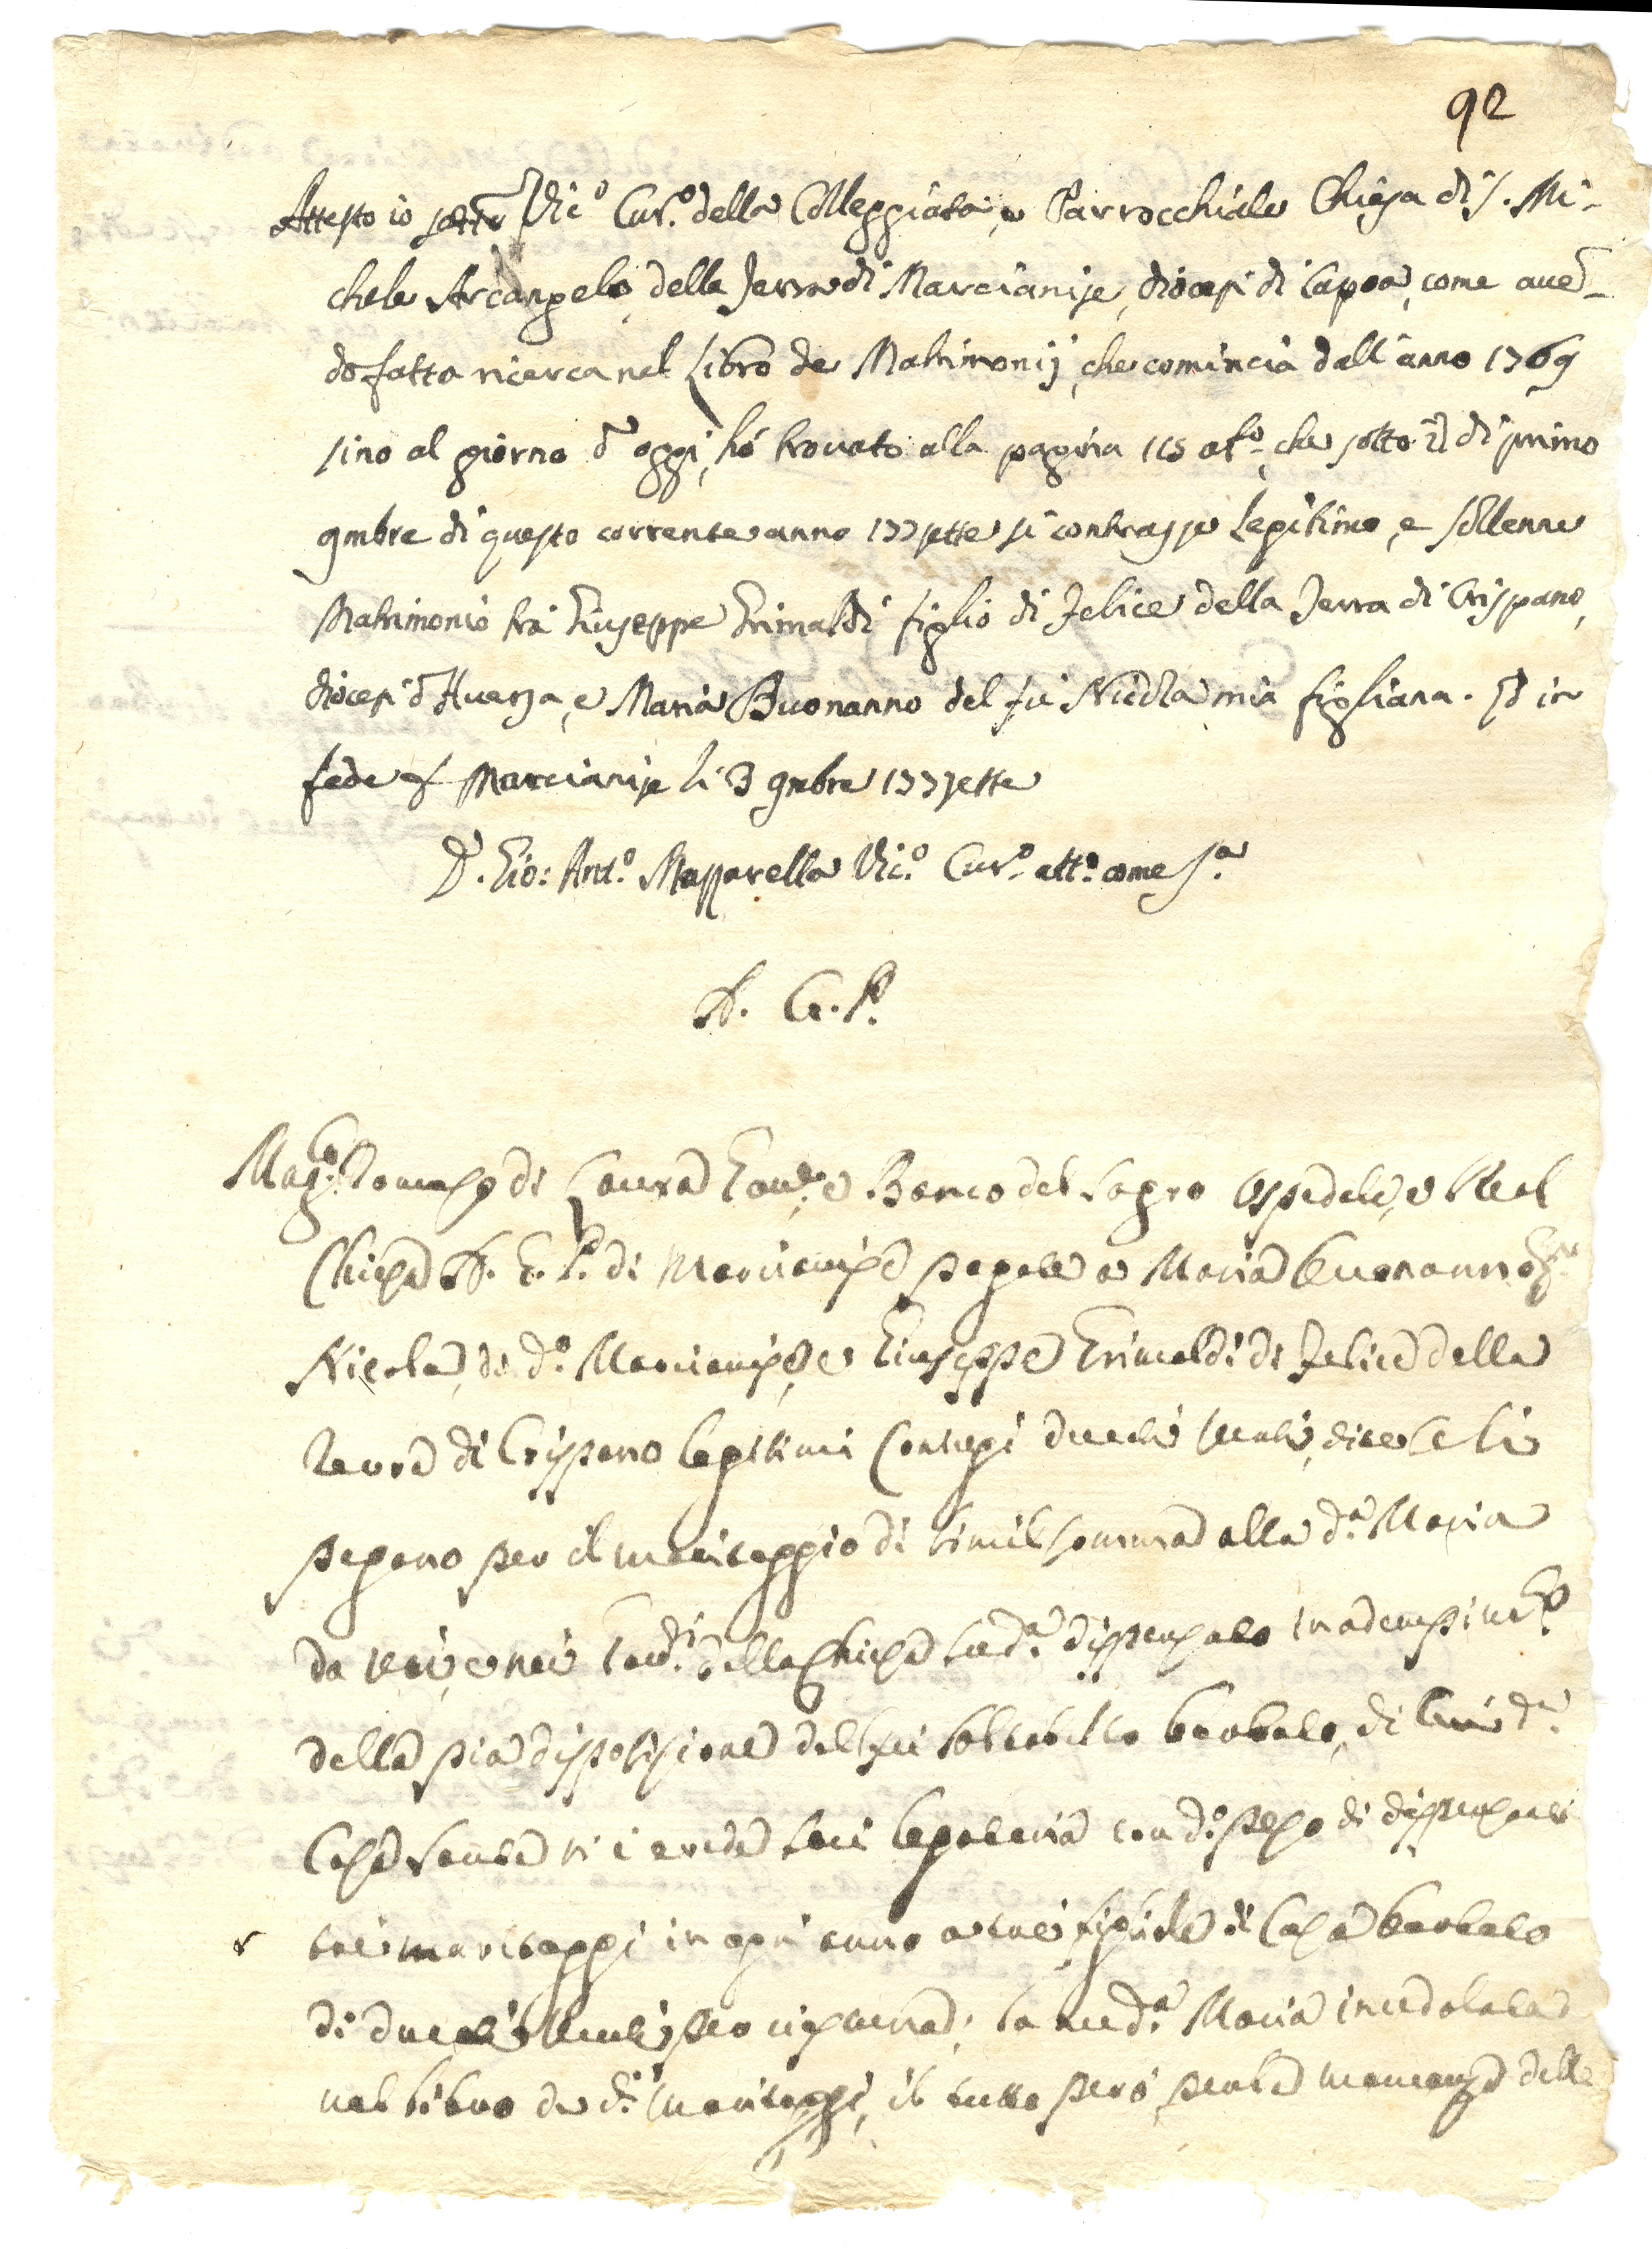 92
Attesto io sott.o Vic.o Cur.o della Colleggiata, e Parrocchiale Chiesa di S. Mi-
chele Arcangelo, della Terra di Marcianise, diocesi di Capoa, come aven-
do fatto ricerca nel Libro de Matrimonij, che comincia dall'anno 1769
sino al giorno d'oggi, hò trovato alla pagina 115 at.o, che sotto il dì primo
9mbre di questo corrente anno 177sette si contrasse legitimo, e sollenne
Matrimonio trà Giuseppe Grimaldi figlio di Felice della Terra di Crispano,
diocesi d'Aversa, e Maria Buonanno del fù Nicola mia figliana. Ed in
fede &. Marcianise li 3 9mbre 177sette
D. Gio: Ant.o Mazzarella Vic.o Cur.o att.o come s.a
A. G. P.
Mag.co Tomaso di Laura Gov.re e Banco del Sagro Ospedale, e Real
Chiesa A. G. P. di Marcianise pagate a Maria Buonanno
Nicola, di d.o Marcianise, e Giuseppe Grimaldi di Felice della
Terra di Crispano legitimi Coniugi ducati venti, dite se li
pagano per il maritaggio di simil somma alla d.a Maria
da voi, e noi Gov.ri della Chiesa sud.a dispensato in adempim.to
della pia disposizione del fù Barbato, di cui d.a
Casa Santa n'è erede seu legataria con d.o peso di dispensare
trè maritaggi in ogni anno a trè figliole di Casa Barbato
di ducati venti per ciascuna; la sud.a Maria incedolata
nel libro de d.i maritaggi, il tutto però senza mancanza delle